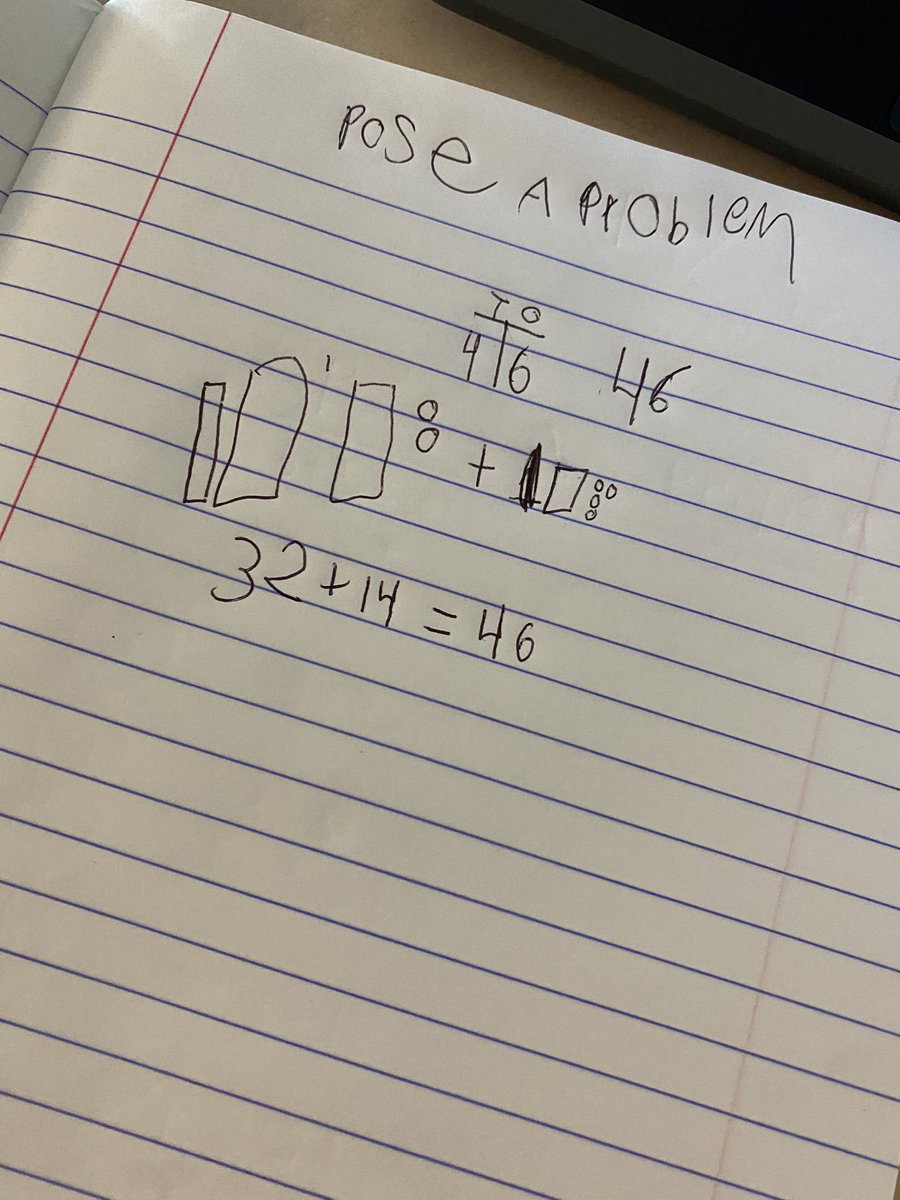 POSE A PROblEM
T O
4 6 46
+
32+14=46